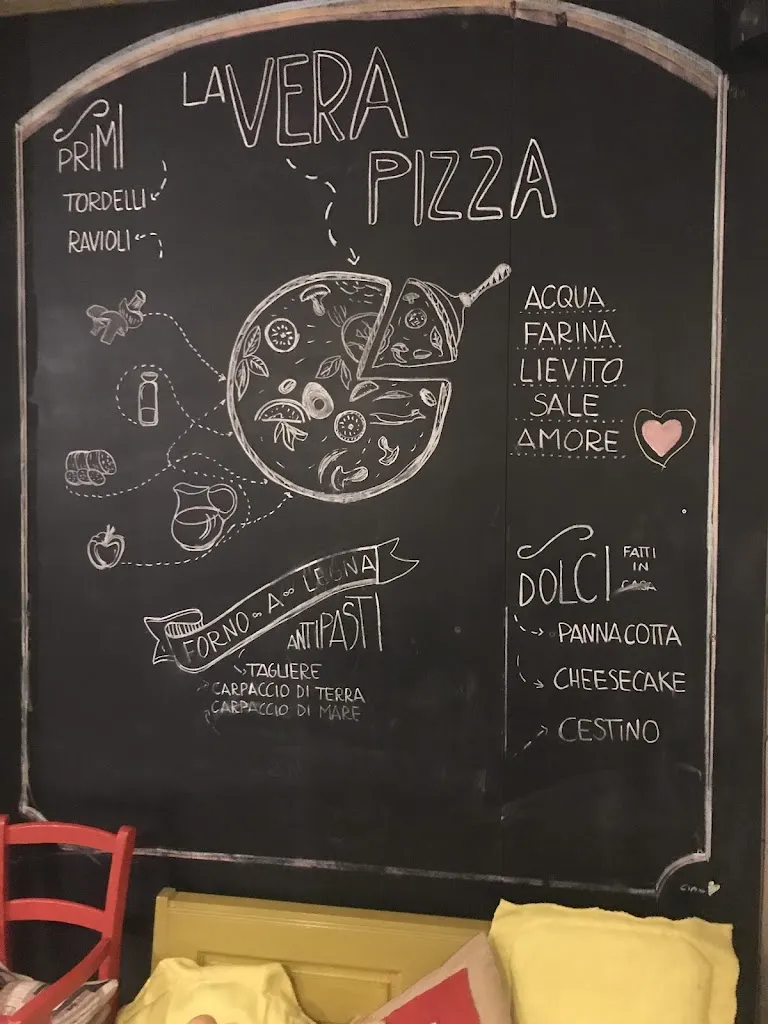 LA VERA
PIZZA
PRIMI
TORDELLI
RAVIOLI
ACQUA
FARINA
LIEVITO
SALE
AMORE
FORNO A LEGNA
ANTIPASTI
TAGLIERE
CARPACCIO DI TERRA
CARPACCIO DI MARE
DOLCI
FATTI
IN
CASA
PANNACOTTA
CHEESECAKE
CESTINO